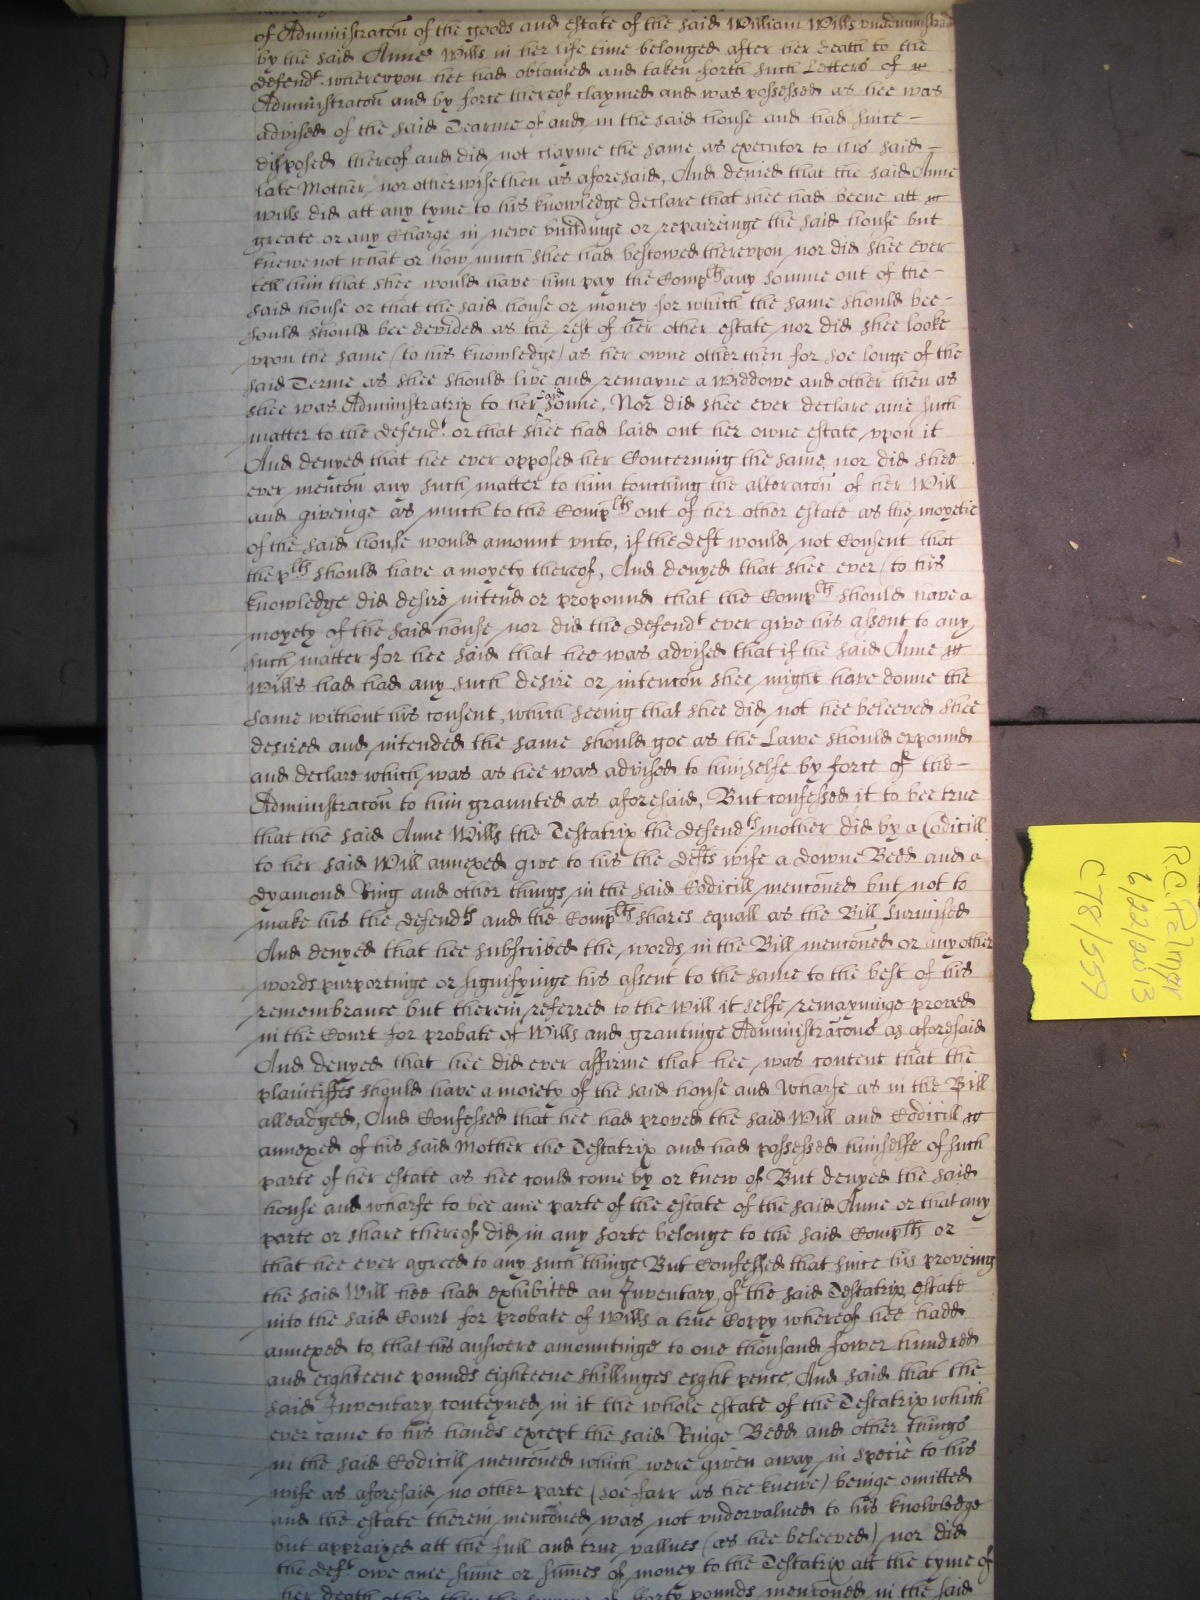 of Administracon of the goods and estate of the said William Wills vnadministred
by the said Anne Wills in her life time belonged after her death to the
defendt. wherevpon hee had obtained and taken forth such Letters of
Administracon and by force thereof claymed and was possessed as hee was
advised of the said Tearme of and in the said house and had since –
disposed thereof and did not clayme the same as executor to his said –
late Mother nor otherwise then as aforesaid, And denied that the said Anne
Wills did att any tyme to his knowledge declare that shee had beene att
greate or any Charge in newe buildinge or repaireinge the said house but
knewe not what or how much shee had bestowed therevpon nor did shee ever
tell him that shee would have him pay the Complts any somme out of the –
said house or that the said house or money for which the same should bee –
sould should bee devided as the rest of her other estate nor did shee looke
vpon the same (to his knowledge) as her owne other then for soe longe of the
said Terme as shee should live and remayne a widdowe and other then as
shee was Administratrix to her said sonne, Nor did shee ever declare anie such
matter to the defendt. or that shee had laid out her owne estate vpon it
And denyed that hee ever opposed her Concerning the same nor did shee
ever mencon any such matter to him touching the alteracon of her Will
and giveinge as much to the Complts out of her other estate as the moyetie
of the said house would amount vnto, if the deft would not Consent that
the plts should have a moyety thereof, And denyed that shee ever (to his
knowledge did desire intend or propound that the Complts should have a
moyety of the said house nor did the defendt ever give his assent to any
such matter for hee said that hee was advised that if the said Anne
Wills had had any such desire or intencon shee might have donne the
same without his consent, which seeing that shee did not hee beleeved shee
desired and intended the same should goe as the Lawe should expound
and declare which was as hee was advised to himselfe by force of the –
Administracon to him graunted as aforesaid, But confessed it to bee true
that the said Anne Wills the Testatrix the defendts mother did by a Codicill
to her said Will annexed give to his the defts wife a downe Bedd and a
dyamond Ring and other things in the said Codicill menconed but not to
make his the defendts and the Complts shares equall as the Bill surmised
And denyed that hee subscribed the words in the Bill menconed or any other
words purportinge or signifyinge his assent to the same to the best of his
remembrance but therein referred to the Will it selfe remayninge proved
in the Court for probate of Wills and grantinge Administracons as aforesaid
And denyed that hee did ever affirme that hee was content that the
plaintiffes should have a moiety of the said house and wharfe as in the Bill
alleadged, And Confessed that hee had proved the said Will and Codicill
annexed of his said Mother the Testatrix and had possessed himselfe of such
parte of her estate as hee could come by or knew of But denyed the said
house and wharfe to bee anie parte of the estate of the said Anne or that any
parte or share thereof did in any sorte belonge to the said Complts or –
that hee ever agreed to any such thinge But Confessed that since his proveing
the said Will hee had exhibited an Inventary of the said Testatrix estate
into the said Court for probate of Wills a true Coppy whereof hee hadd
annexed to that his answere amountinge to one thousand fower hundred
and eighteene pounds eighteene shillinges eight pence, And said that the
said Inventary conteyned in it the whole estate of the Testatrix which
ever came to his hands except the said Ringe Bedd and other things
in the said Codicill menconed which were given away in specie to his
wife as aforesaid no other parte (soe farr as hee knewe) beinge omitted
and the estate therein menconed was not vndervalued to his knowledge
but appraized att the full and true vallues (as hee beleeved) nor did
the deft. owe anie summe or summes of money to the Testatrix att the tyme of
her death other then the summe of forty pounds menconed in the said
R.C. Palmer
6/22/2013
C78/559